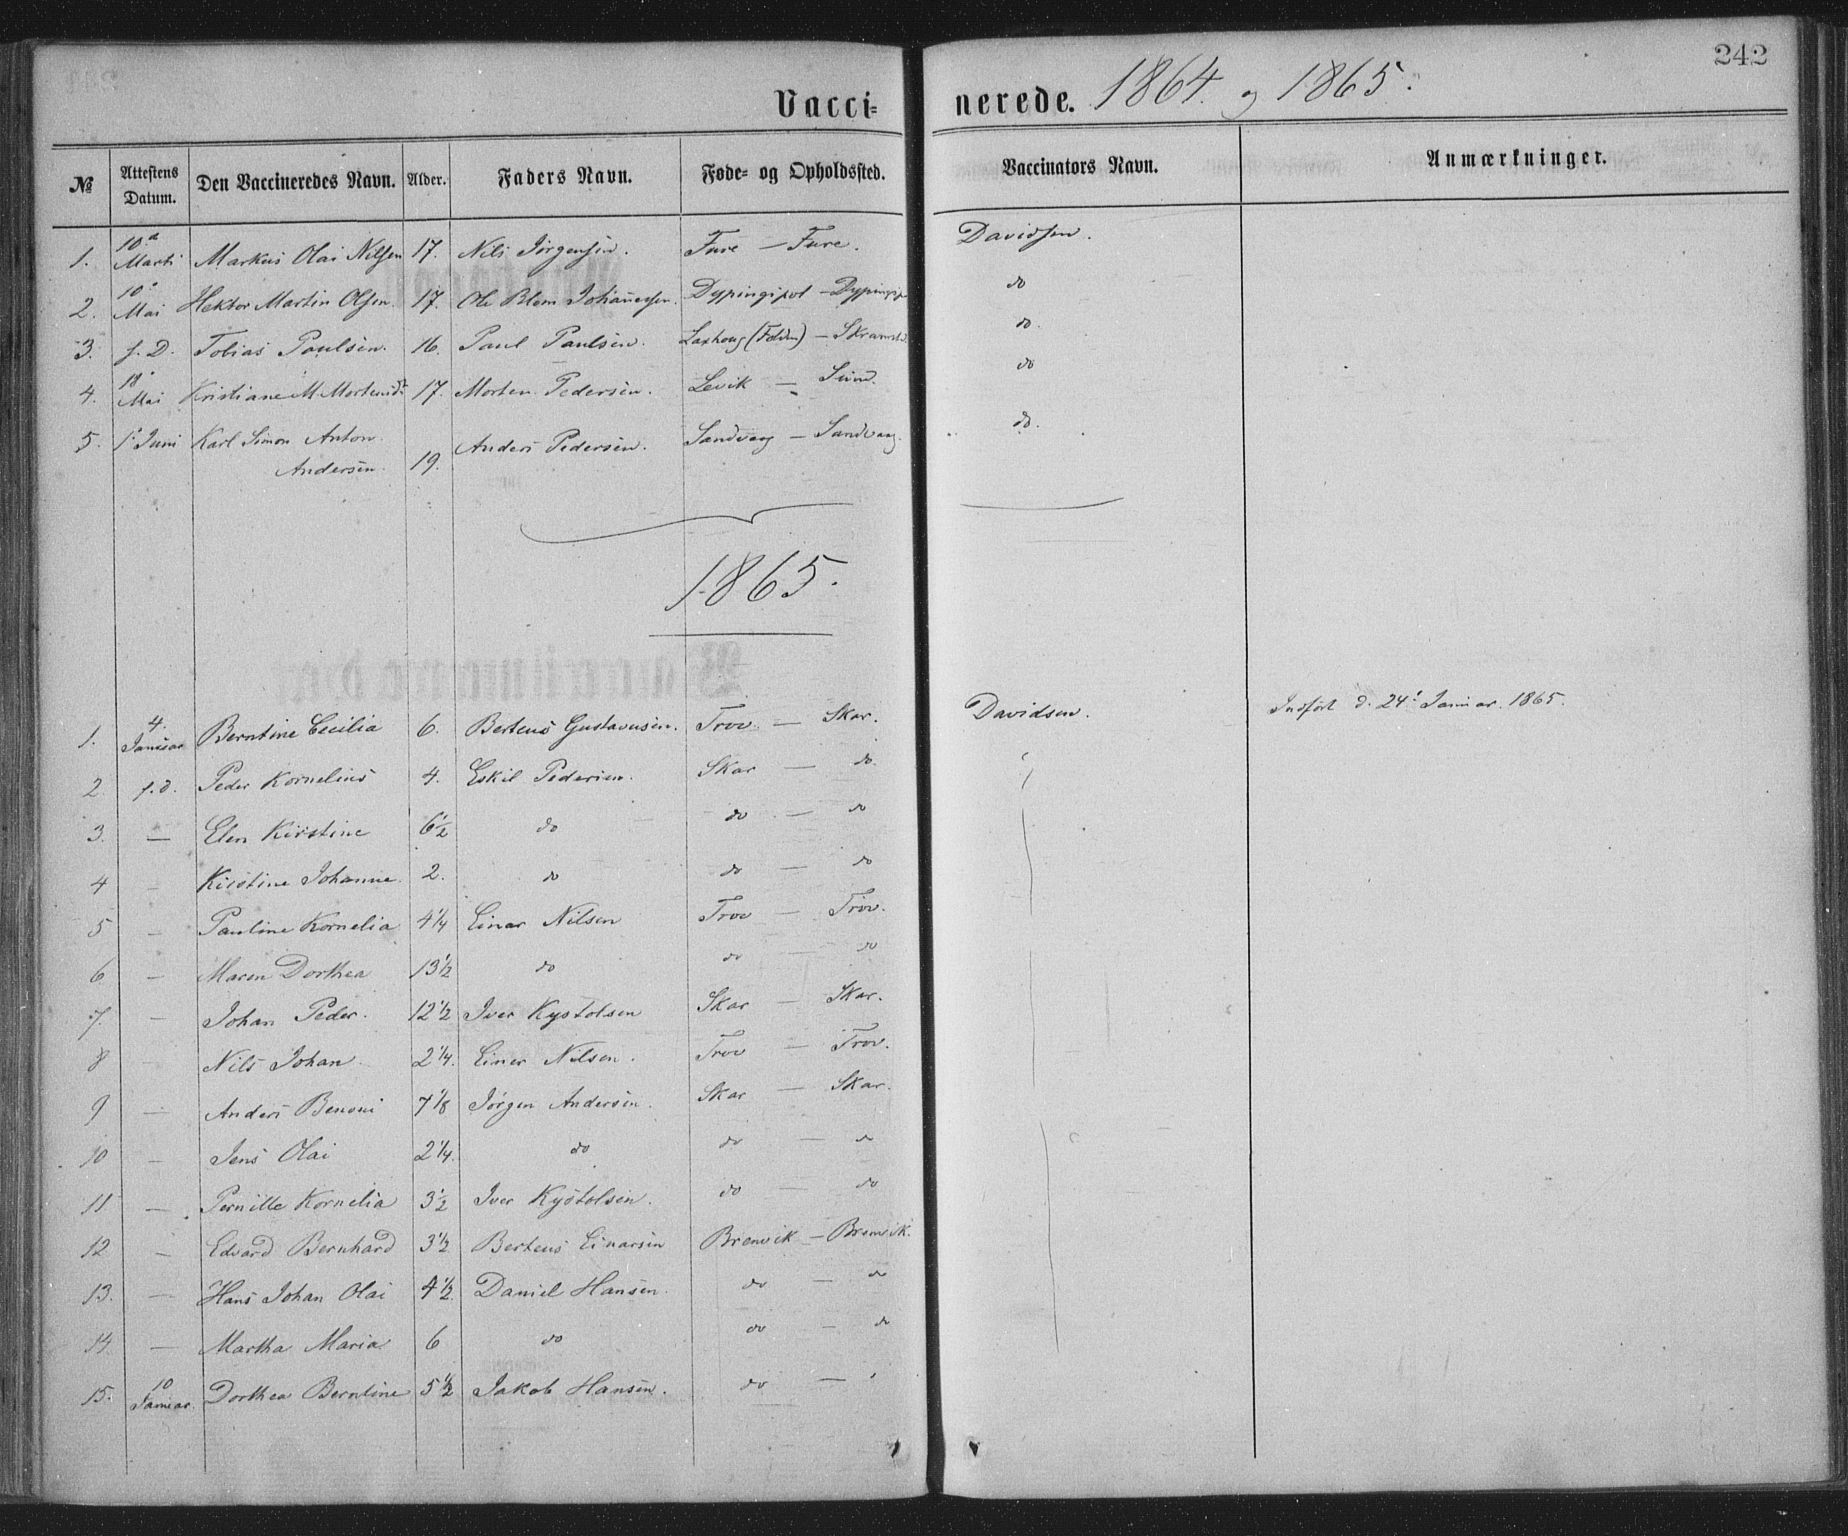 242
Vacci= nerede. 1864. og 1865.
№ Attestens Datum. Den Vaccineredes Navn. Alder. Faders Navn. Føde= og Opholdssted. Vaccinators Navn. Anmærkninger.
1. 10. Marti Markus Olai Nilsen 17. Nils Jörgensen. Fure — Fure. Davidsen.
2. 10. Mai Hektor Martin Olsen. 17. Ole Blem Johannessen. Dypingipol — do
3. f. D. Tobias Paulsen. 16. Paul Paulsen. Laxhoug (Folden) — do.
4. 18. Mai Kristiane M. Mortensd. 17. Morten Pedersen. Levik — Sund. do
5. 1. Juni Karl Simon Anton Anders Pedersen. Sandvaag — Sandvaag. do.
Andersen. 19.
1865.
1. 4. Januar Berntine Cecilia 6. Berteus Gustavusen. Trov — Skar. Davidsen. Indført d. 24. Januar. 1865.
2. f. d. Peder Kornelius 4. Eskil Pedersen. Skar — do.
3. — Elen Kirstine 6½ do do — do
4 — Kirstine Johanne. 2. do do — do
5 — Pauline Kornelia 4¼ Einar Nilsen Trov — Trov.
6 — Maren Dorthea 13½ do do — do
7. — Johan Peder. 12½ Iver Kystolsen Skar — Skar.
8 Nils Johan. 2¼. Einer Nilsen. Trov — Trov.
9 — Anders Benoni 7⅛ Jörgen Andersen. Skar — Skar.
10 — Jens Olai 2¼. do do — do
11 — Pernille Kornelia 3½ Iver Kystolsen. do — do
12 — Edvard Bernhard 3½ Berteus Einarsen Brenvik — Brenvik.
13. — Hans Johan Olai 4½. Daniel Hansen. do — do
14. — Martha Maria 6 do do — do
15. 10 Januar. Dorthea Berntine 5½ Jakob Hansen. do —